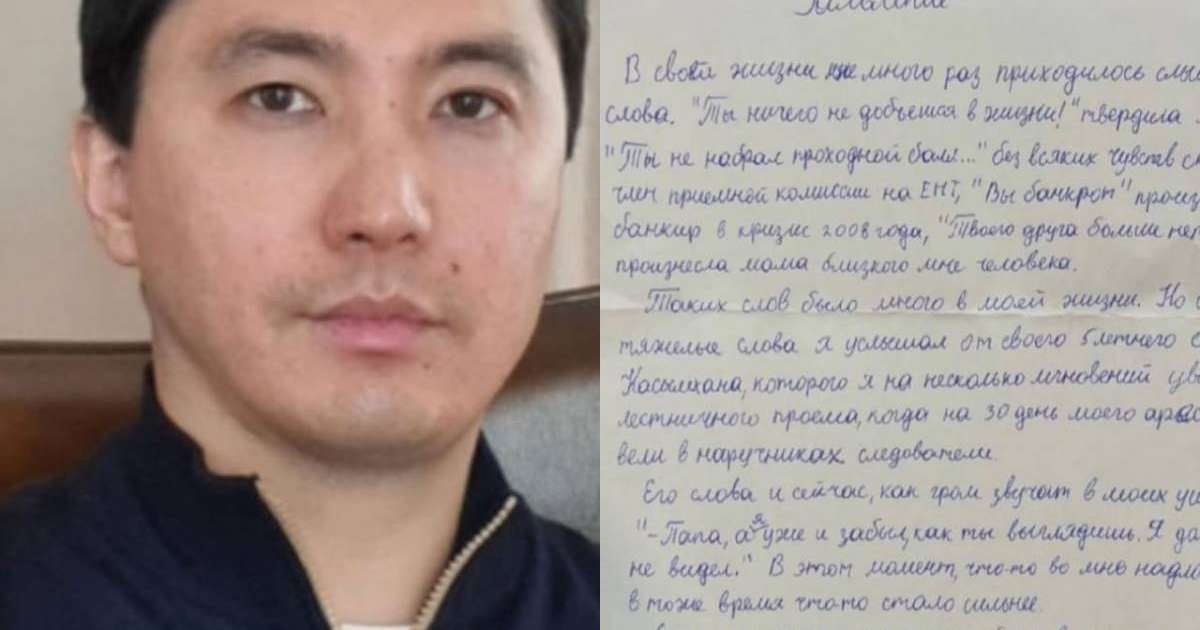 В своей жизни мне много раз приходилось
слова. "Ты ничего не добьешся в жизни!" твердила
"Ты не набрал проходной балл..." без всяких чувств
член приемной комиссии на ЕНТ, "Вы банкрот"
банкир в кризис 2008 года, "Твоего друга больше нет
произнесла мама близкого мне человека.
Таких слов было много в моей жизни. Но
тяжелые слова я услышал от своего 5 летнего
Касымхана, которого я на несколько мгновений
лестничного проема, когда на 30 день моего
вели в наручниках следователи.
Его слова и сейчас, как гром звучат в моих
"-Папа, а я уже и забыл, как ты выглядишь. Я
не видел." В этот момент, что-то во мне
в тоже время что-то стало сильнее.